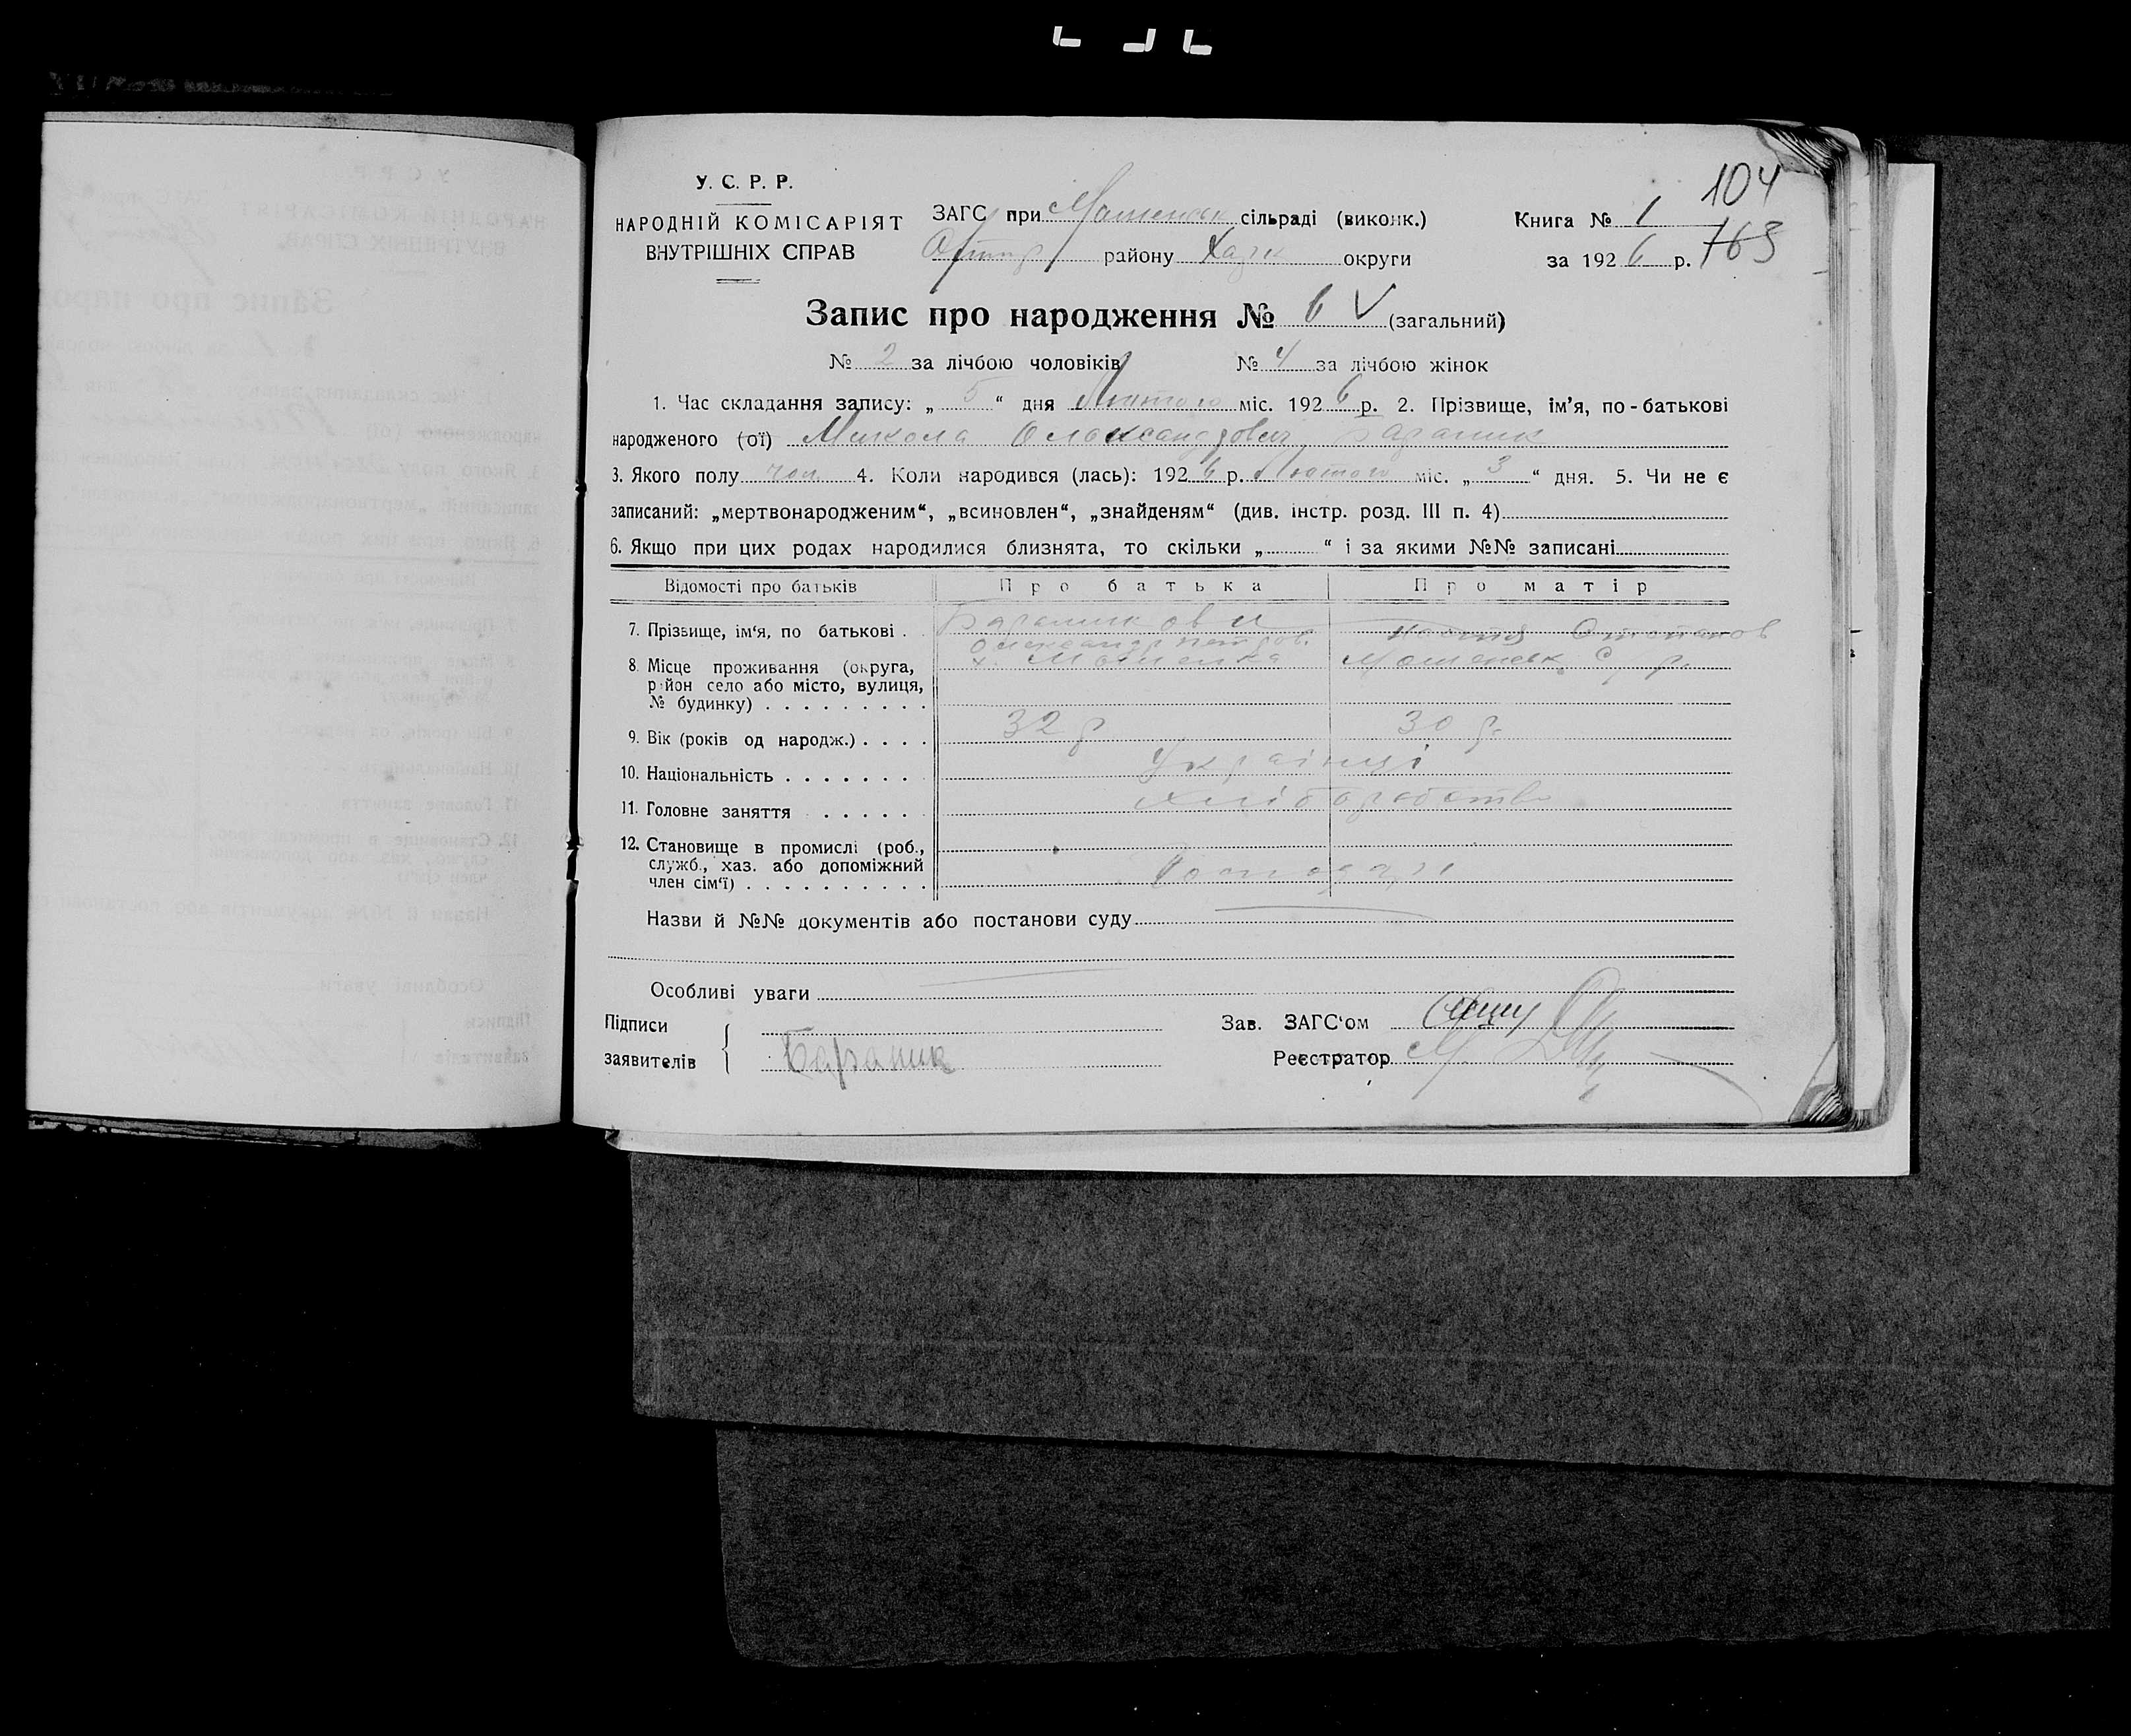 104
У. С. Р. Р.
НАРОДНІЙ КОМІСАРІЯТ
ВНУТРІШНІХ СПРАВ
ЗАГС при Мошенськ сільраді (виконк.)
района Харк округи
Книга № 1
за 1926 р. 763
Запис про народження № 6 V (загальний)
№ 2 за лічбою чоловіків № 4 за лічбою жінок
1. Час складання запису: „ 5 “ дня Лютого міс. 1926 р. 2. Прізвище, ім’я, по-батькові
народженого (ої) Микола Олександрович Бараник
3. Якого полу чол. 4. Коли народився (лась): 1926 р. Лютого міс. „ 3 “ дня. 5. Чи не є
записаний: „мертвонародженим“, „всиновлен“, „знайденям“ (див. інстр. розд. III п. 4)
6. Якщо при цих родах народилися близнята, то скільки „ “ і за якими №№ записані
Відомості про батьків Про батька Про матір
7. Прізвище, ім‘я, по батькові . Бараникови
Олександр Петров. Настя Степанов
8. Місце проживання (округа, х. Мошенка Мошенськ с/р.
район село або місто, вулиця,
№ будинку) . . . . . . . . .
9. Вік (років од народж.) . . . . 32 р 30 р.
10. Національність . . . . . . . Українці
11. Головне заняття . . . . . Хліборобство
12. Становище в промислі (роб.,
служб., хаз. або допоміжний
член сім‘ї) . . . . . . . . . . Господарі
Назви й №№ документів або постанови суду
Особливі уваги
Підписи
заявителів Бараник
Зав. ЗАГС‘ом
Реєстратор